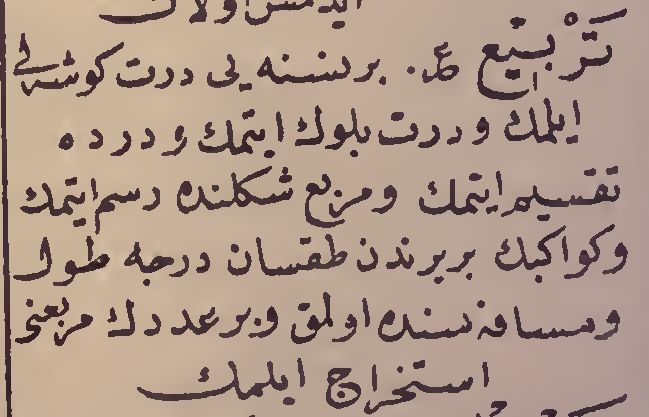 ایدلمش اولان
تَرْبِیْع ع. برنسنه یی درت کوشه لی
ایلمك و درت بلوك ایتمك و درده
تقسیم ایتمك و مربع شکلنده رسم ایتمك
و کواکبك بربرندن طقسان درجه طول
و مسافه سنده اولمق و بر عددك مربعنی
استخراج ایلمك